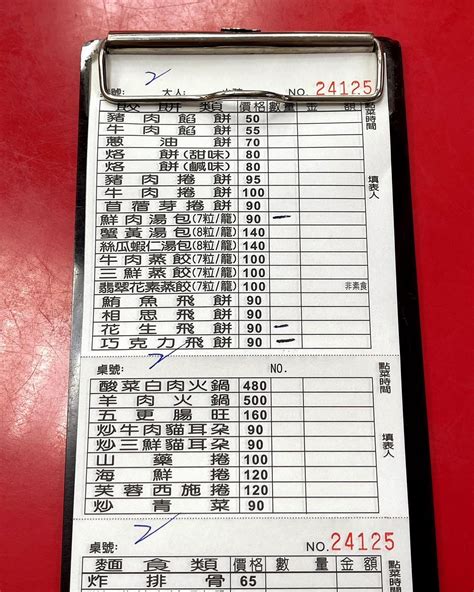 桌號: 2 大人: NO. 24125
餃餅類 價格 數量 金額 點菜時間
豬肉餡餅 50
牛肉餡餅 55
蔥油餅 70
烙餅(甜味) 80
烙餅(鹹味) 80
豬肉捲餅 95 填表人
牛肉捲餅 100
苜蓿芽捲餅 90
鮮肉湯包(7粒/籠) 90 一
蟹黃湯包(8粒/籠) 140
絲瓜蝦仁湯包(8粒/籠) 140
牛肉蒸餃(7粒/籠) 100
三鮮蒸餃(7粒/籠) 100
翡翠花素蒸餃(7粒/籠) 100 非素食
鮪魚飛餅 90
相思飛餅 90
花生飛餅 90 一
巧克力飛餅 90 一
桌號: 2 NO. 點菜時間
酸菜白肉火鍋 480
羊肉火鍋 500
五更腸旺 160
炒牛肉貓耳朵 90 填表人
炒三鮮貓耳朵 90
山藥捲 100
海鮮捲 120
芙蓉西施捲 120
炒青菜 90
桌號: 2 NO. 24125
麵食類 價格 數量 金額
炸排骨 65